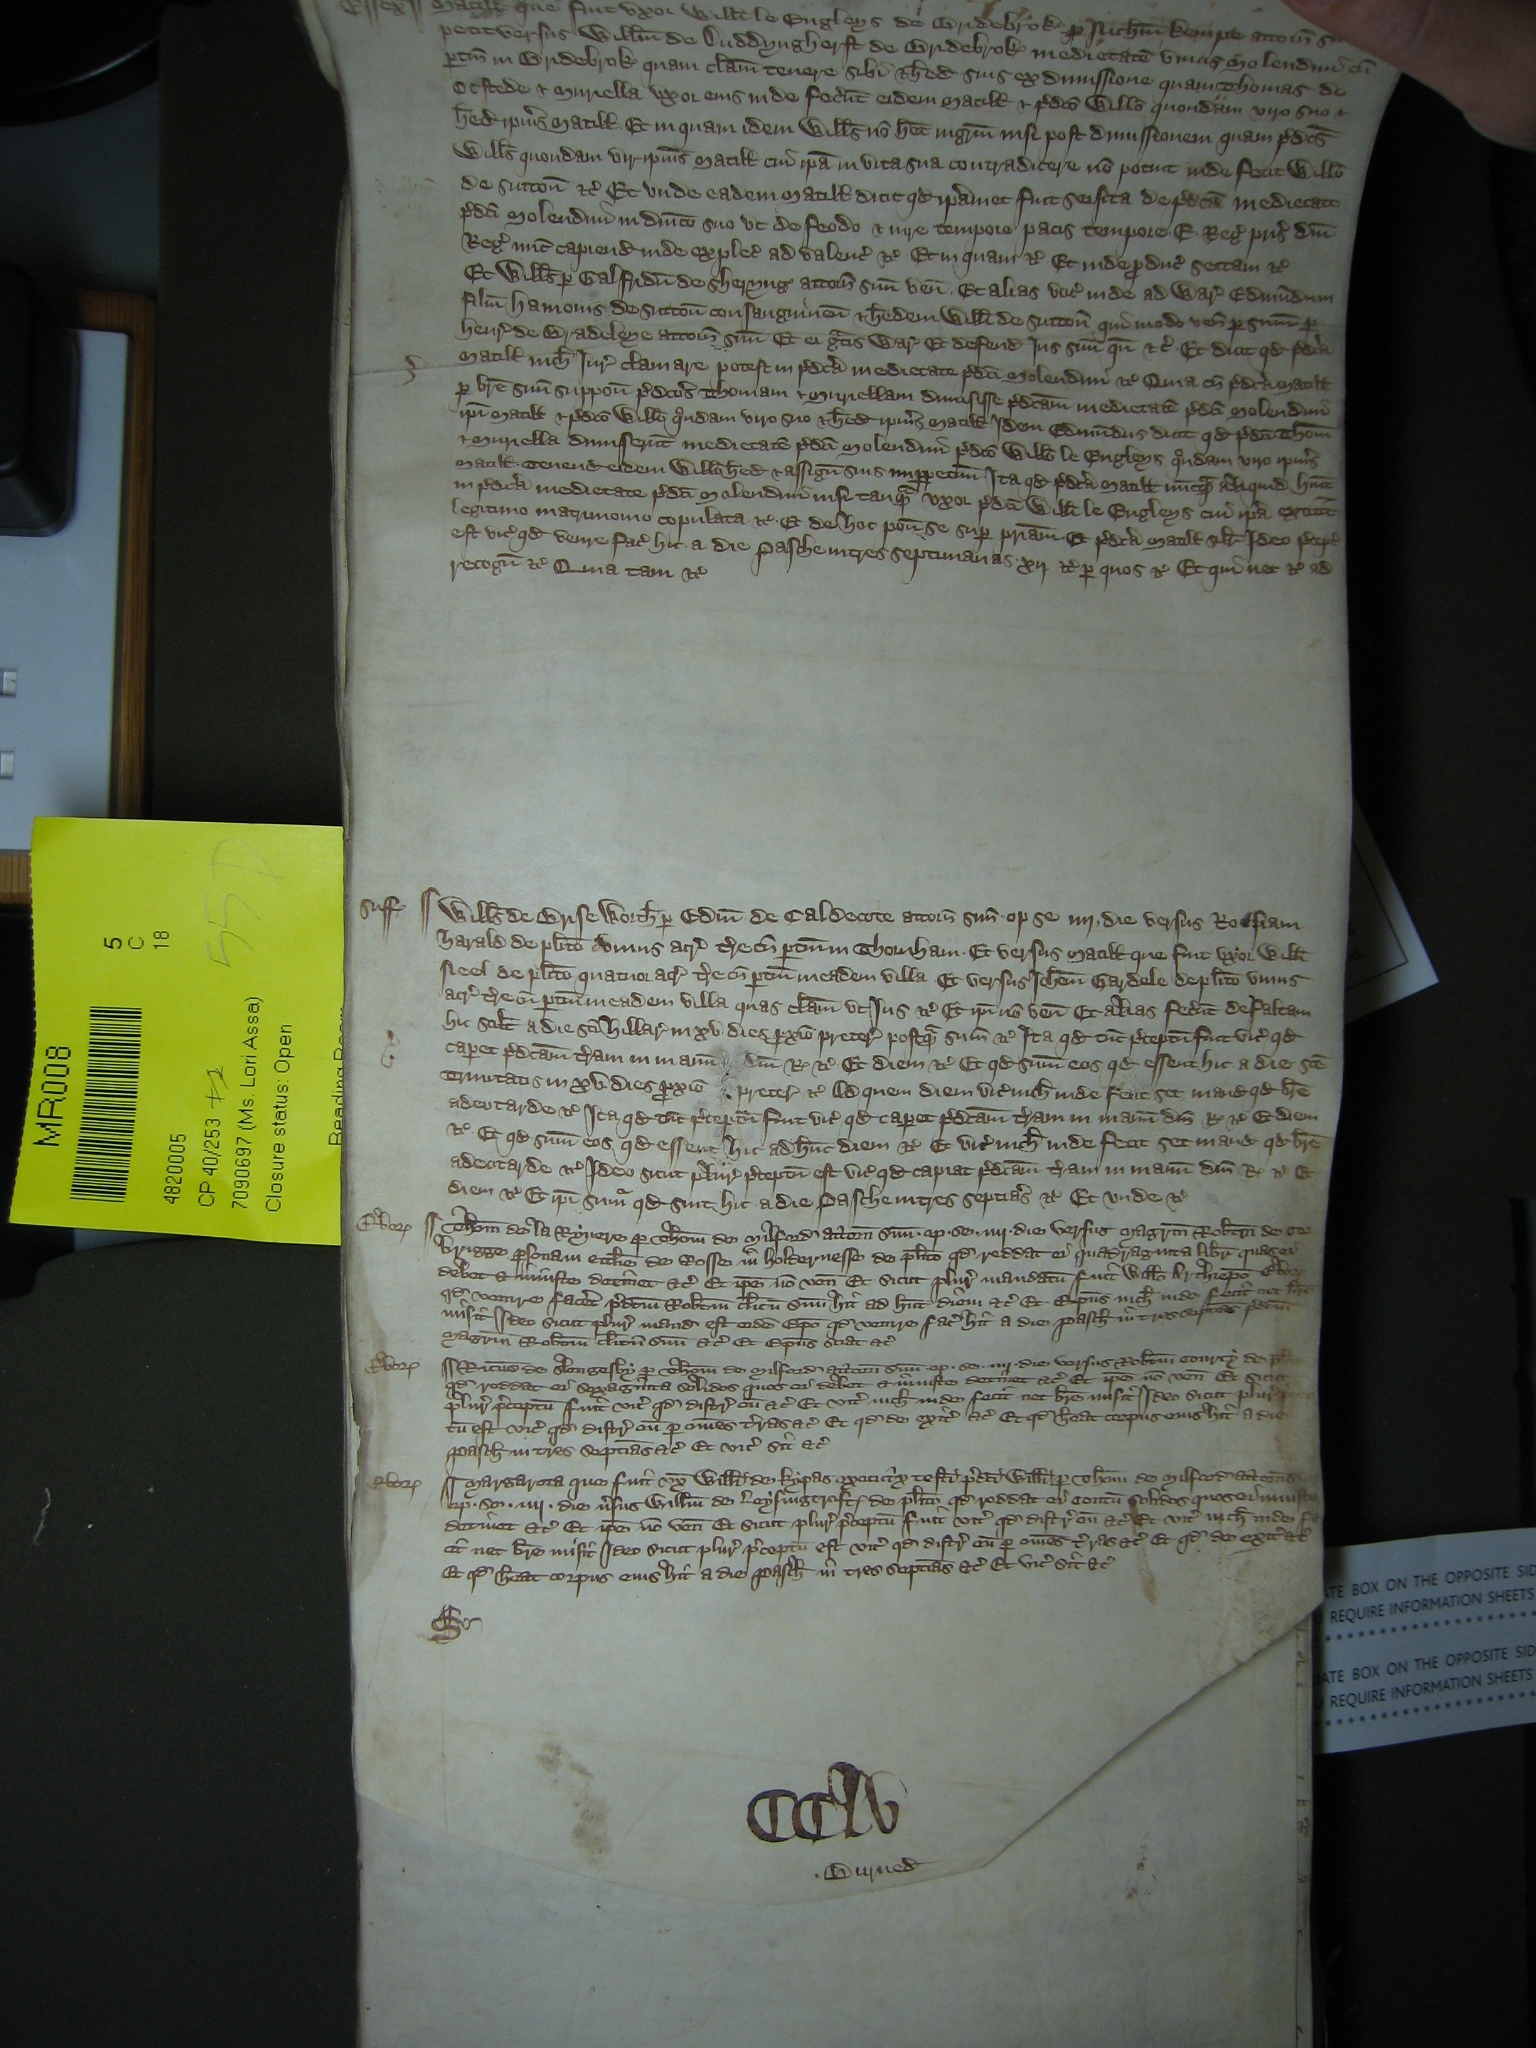 Essex Matill que fuit uxor Willi le Engleys de Bridebrok p Nichm kempe attorn
petit versus Willm de Luddyngherst de Bridebrok medietate unius Molendini cu
ptin in Bridebrok quam clam tenere sibi & hed suis ex dimissione quam Thomas de
Ocstede & Muriella uxor eius inde fecert eidem Matill & pdco Willo quondam viro suo &
hed ipius Matill Et in quam idem Wills no het ingrm nisi post dimissionem quam pdcs
Wills quondam vir ipius Matill cui ipa in vita sua contradicere no potuit inde fecit Willo
de Sutton &c Et unde eadem Matill dicit qd ipamet fuit seisita de pdca medietate
pdci Molendini in dnico suo ut de feodo & iure tempore pacis tempore E Reg pris dni
Reg nuc capiend inde explec ad valenc &c Et in quam &c Et inde pduc sectam &c
Et Wills p Galfridu de Sheryng attorn suu ven Et alias voc inde ad War Edmundum
filiu Hamonis de Sutton consanguineu & hedem Willi de Sutton qui modo ven p sum p
Henr de Bradeleye attorn suu Et ei gtis War Et defend Jus suu qn &c Et dicit qd pdca
Matill nich Jur clamare potest in pdca medietate pdci Molendini &c Quia cu pdca Matill
p bre suu suppon pdcos Thomam & Muriellam dimisisse pdcam medietate pdci Molendini
ipi Matill & pdco Willo qndam viro suo & hed ipius Matill Idem Edmundus dicit qd pdci Thom
& Muriella dimiserut medietate pdci Molendini pdco Willo le Engleys qndam viro ipius
Matill Tenend eidem Willo hed & assign suis imppetuu Ita qd pdca Matill nucq Aliquid huit
in pdca medietate pdci Molendini nisi tanq uxor pdci Willi le Engleys cui ipa extitit
legitimo matrimonio copulata &c Et de hoc pon se sup priam Et pdca Matill silr Ideo pcept
est vic qd venire fac hic a die Pasche in tres septimanas xij &c p quos &c Et qui nec &c ad
recogn &c Quia tam &c
Suff Wills de Briseworth p Edm de Caldecote attorn suu op se iiij die versus Rosiam
Harald de plito unius acr tre cu ptin in Thornham Et versus Matill que fuit uxor Willi
de plito quatuor acr tre cu ptin in eadem villa Et versus Johem Gardele de plito unius
acr tre cu ptin in eadem villa quas clam ut Jus &c Et ipi no ven Et alias fecut defaltam
hic scilt a die sci Hillar in xv dies pxio preter postq sum &c Ita qd tuc pceptu fuit vic qd
capet pdcam tram in manu dni R &c Et diem &c Et qd sum eos qd essent hic a die sce
Trinitatis in xv dies pxio preter &c Ad quem diem vic nich inde fecit set mand qd bre
adeo tarde &c Ita qd tuc pceptu fuit vic qd capet pdcam tram in manu dni R &c Et diem
&c Et qd sum eos qd essent hic ad hunc diem &c Et vic nich inde fecit set mand qd bre
adeo tarde &c Ideo sicut plur pceptu est vic qd capiat pdcam tram in manu dni R &c Et
diem &c Et ipi sum qd sint hic a die Pasche in tres septias &c Et unde &c
Ebor Thom de la Ryvere p Thom de Milford attorn suu op se iiij die versus Magrm Robtm de
brigge psonam ecclie de Rosse in Holdernesse de plito qd reddat ei quadraginta libr quas ei
debet & iniuste detinet &c Et ipe no ven Et sicut plur mandatu fuit Willo Archiepo Ebor
qd venire facet pdcm Robtm clicu suu hic ad hunc diem &c Et Epus nich inde fecit nec bre
misit Ideo sicut plur mand est eidem Epo qd venire fac hic a die Pasch in tres septias pdcm
Magrm Robtm clicu suu &c Et Epus sciat &c
Ebor Ricus de Slengesby p Thom de Milford attorn suu op se iiij die versus Robtm Courcy de plito
qd reddat ei sexaginta solidos quos ei debet & iniuste detinet &c Et ipe no ven Et sicut
plur pceptu fuit vic qd distr eu &c Et vic nich inde fecit nec bre misit Ideo sicut plur
tu est vic qd distr eu p omes tras &c Et qd de exit &c Et qd heat corpus eius hic a die
Pasch in tres septias &c Et vic sit &c
Ebor Margareta que fuit ux Willi de kypas executrix testi pdci Willi p Thom de Milford attorn
op se iiij die vsus Willm de Leysingcroft de plito qd reddat ei centu solidos quos ei iniuste
detinet &c Et ipe no ven Et sicut plur pceptu fuit vic qd distr eu &c Et vic nich inde
cit nec bre misit Ideo sicut plur pceptu est vic qd distr eu p omes tras &c Et qd de exit &c
Et qd heat corpus eius hic a die Pasch in tres septias &c Et vic sit &c
MR008
5
C
18
4820005
CP 40/253
7090697 (Ms. Lori Assa)
Closure status: Open
Reading Room
55D
ATE BOX ON THE OPPOSITE SID
REQUIRE INFORMATION SHEETS
ATE BOX ON THE OPPOSITE SID
REQUIRE INFORMATION SHEETS